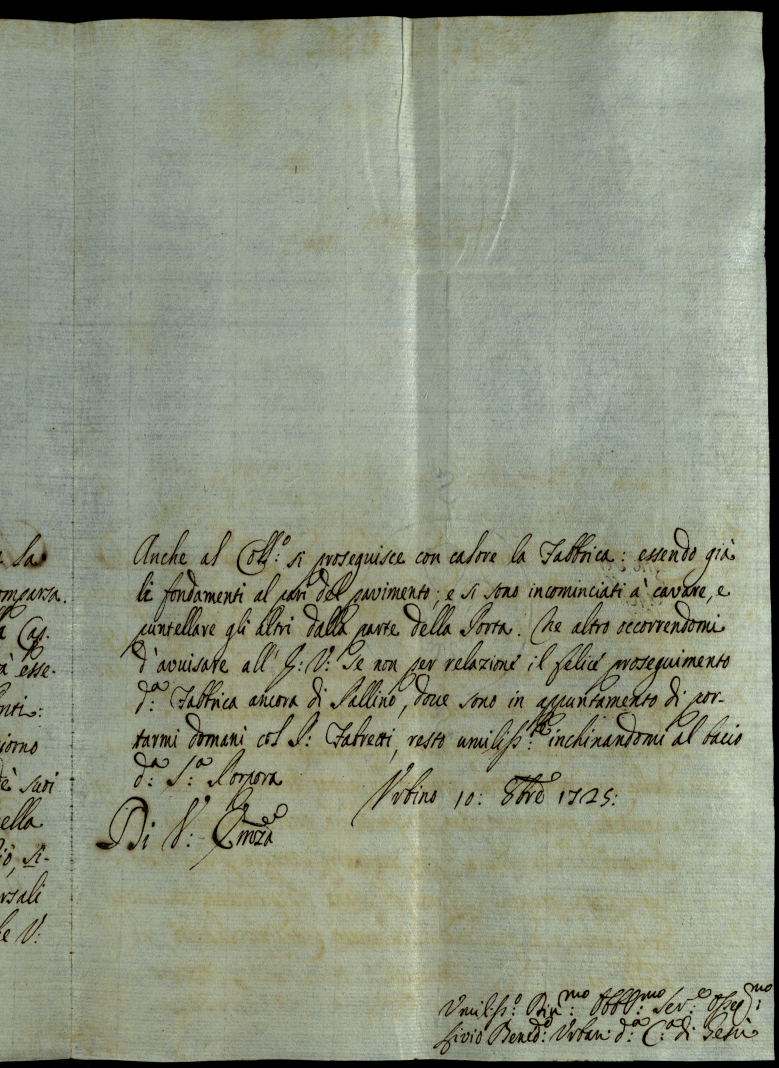 la
omparsa.
Cap.
à esse-
nti:
iorno
dè suoi
ella
iò, si-
rsali
le V:
Anche al Coll:º si proseguisce con calore la Fabbrica: essendo già
li fondamenti al pari del pavimento; e si sono incominciati à cavare, e
puntellare gli altri dalla parte della Porta. Ne altro occorrendomi
d'avvisare all' E: V: se non per relazione il felice proseguimento
d:ª Fabbrica ancora di Pallino, dove sono in appuntamento di por-
tarmi domani col P: Fabretti, resto umiliss:te inchinandomi al bacio
d:ª S:ª Porpora
Urbino 10: 8bre 1725:
Di V: Emza
Umiliss:º Obbl:mo Ser:e Osseq:mo
Livio Bened:º Urban: d:ª C:ª di Gesù